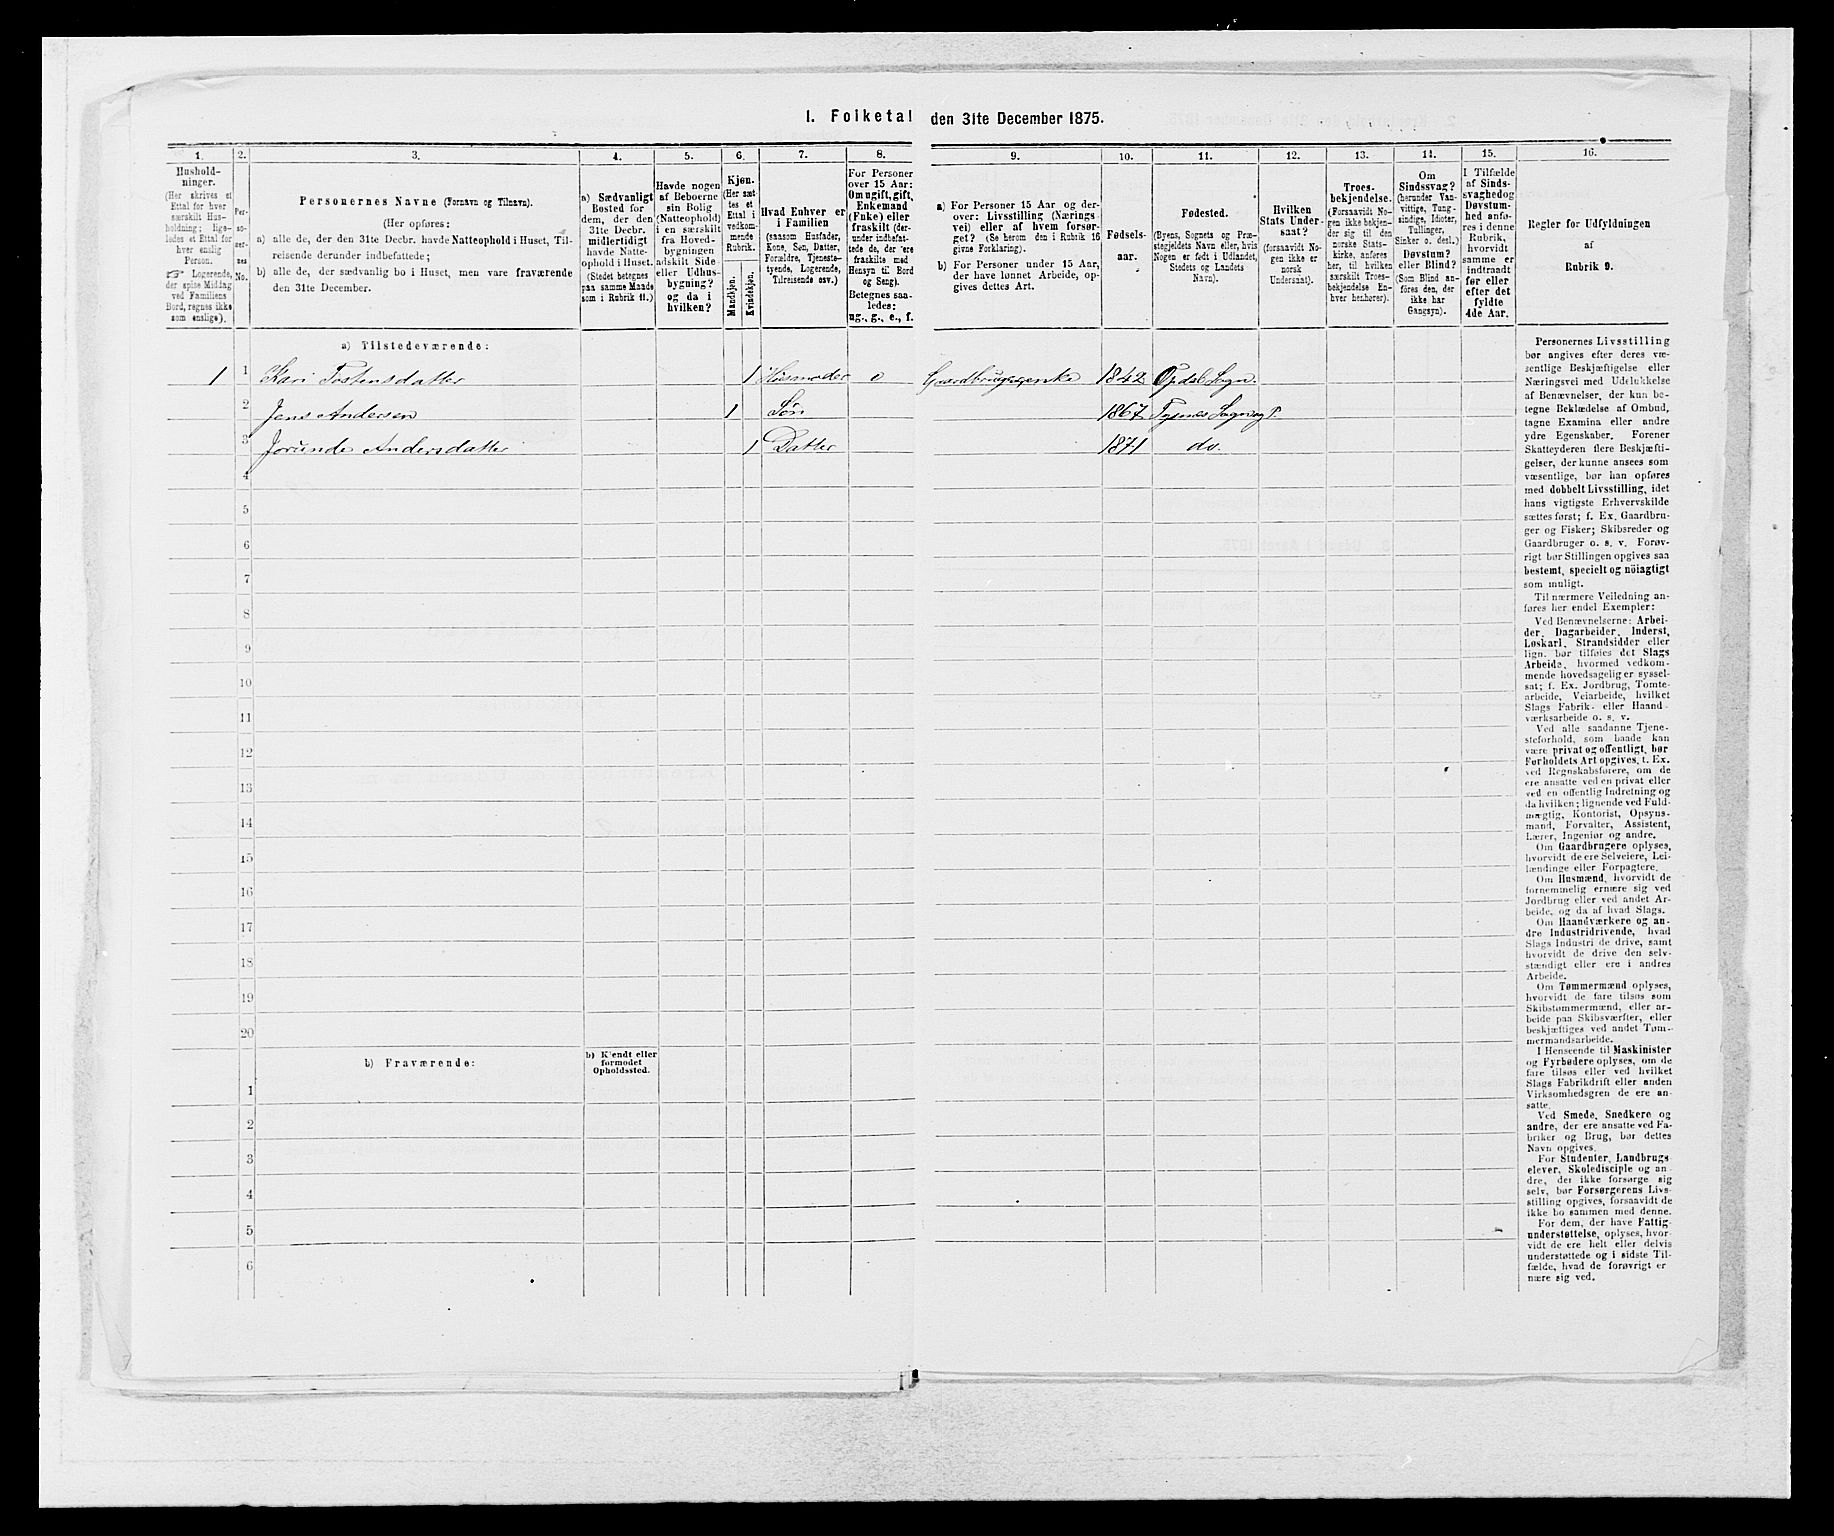 I. Folketal den 31te December 1875.
1. 2. 3. 4. 5. 6. 7. 8. 9. 10. 11. 12. 13. 14. 15. 16.
Hushold-
ninger.
(Her skrives et
Ettal for hver
særskilt Hus-
holdning; lige-
ledes et Ettal for
hver enslig
Person.
☞ Logerende,
der spise Middag
ved Familiens
Bord, regnes ikke
som enslige).
Per-
so-
ner-
nes
No.
Personernes Navne (Fornavn og Tilnavn).
(Her opføres:
a) alle de, der den 31te Decbr. havde Natteophold i Huset, Til-
reisende derunder indbefattede;
b) alle de, der sædvanlig bo i Huset, men vare fraværende
den 31te December.
a) Sædvanligt
Bosted for
dem, der den
31te Decbr.
midlertidigt
havde Natte-
ophold i Huset.
(Stedet betegnes
paa samme Maade
som i Rubrik 11.)
Havde nogen
af Beboerne
sin Bolig
(Natteophold)
i en særskilt
fra Hoved-
bygningen
adskilt Side-
eller Udhus-
bygning?
og da i
hvilken?
Kjøn.
(Her sæt-
tes et
Ettal i
vedkom-
mende
Rubrik.
Mandkjøn.
Kvindekjøn.
Hvad Enhver er
i Familien
(saasom Husfader,
Kone, Søn, Datter,
Forældre, Tjeneste-
tyende, Logerende,
Tilreisende osv.)
For Personer
over 15 Aar:
Om ugift, gift,
Enkemand
(Enke) eller
fraskilt (der-
under indbefat-
tede de, der ere
fraskilte med
Hensyn til Bord
og Seng).
Betegnes saa-
ledes:
ug., g., e., f.
a) For Personer 15 Aar og der-
over: Livsstilling (Nærings-
vei) eller af hvem forsør-
get? (Se herom den i Rubrik 16
givne Forklaring).
b) For Personer under 15 Aar,
der have lønnet Arbeide, op-
gives dettes Art.
Fødsels-
aar.
Fødested.
(Byens, Sognets og Præ-
stegjeldets Navn eller, hvis
Nogen er født i Udlandet,
Stedets og Landets
Navn).
Hvilken
Stats Under-
saat?
(forsaavidt No-
gen ikke er
norsk
Undersaat).
Troes-
bekjendelse.
(Forsaavidt No-
gen ikke bekjen-
der sig til den
norske Stats-
kirke, anføres
her, til hvilken
særskilt Troes-
bekjendelse En-
hver henhører).
Om
Sindssvag?
(herunder Van-
vittige, Tung-
sindige, Idioter,
Tullinger,
Sinker o. desl.)
Døvstum?
eller Blind?
(Som Blind an-
føres den, der
ikke har
Gangsyn).
I Tilfælde
af Sinds-
svaghed og
Døvstum-
hed anfø-
res i denne
Rubrik,
hvorvidt
samme er
indtraadt
før eller
efter det
fyldte
4de Aar.
Regler for Udfyldningen
af
Rubrik 9.
a) Tilstedeværende:
1 1 Kari Tostensdatter 1 Husmoder e Gaardbrugerenke 1842 Opdal Sogn.
2 Jens Andersen 1 Søn 1867 Tysnes Sogn og P.
3 Jorunde Andersdatter 1 Datter 1871 do.
4
5
6
7
8
9
10
11
12
13
14
15
16
17
18
19
20
b) Fraværende:
b) Kjendt eller
formodet
Opholdssted.
1
2
3
4
5
6
Personernes Livsstilling
bør angives efter deres væ-
sentlige Beskjæftigelse eller
Næringsvei med Udelukkelse
af Benævnelser, der kun be-
tegne Beklædelse af Ombud,
tagne Examina eller andre
ydre Egenskaber. Forener
Skatteyderen flere Beskjæfti-
gelser, der kunne ansees som
væsentlige, bør han opføres
med dobbelt Livsstilling, idet
hans vigtigste Erhvervskilde
sættes først; f. Ex. Gaardbru-
ger og Fisker; Skibsreder og
Gaardbruger o. s. v. Forøv-
rigt bør Stillingen opgives saa
bestemt, specielt og nöiagtigt
som muligt.
Til nærmere Veiledning an-
føres her endel Exempler:
Ved Benævnelserne: Arbei-
der, Dagarbeider, Inderst,
Løskarl, Strandsidder eller
lign. bør tilføies det Slags
Arbeide, hvormed vedkom-
mende hovedsagelig er syssel-
sat; f. Ex. Jordbrug, Tomte-
arbeide, Veiarbeide, hvilket
Slags Fabrik- eller Haand-
værksarbeide o. s. v.
Ved alle saadanne Tjene-
steforhold, som baade kan
være privat og offentligt, bør
Forholdets Art opgives, f. Ex.
ved Regnskabsførere, om de
ere ansatte ved en privat eller
ved en offentlig Indretning og
da hvilken; lignende ved Fuld-
mægtig, Kontorist, Opsyns-
mand, Forvalter, Assistent,
Lærer, Ingeniør og andre.
Om Gaardbrugere oplyses,
hvorvidt de ere Selveiere, Lei-
lændinge eller Forpagtere.
Om Husmænd, hvorvidt de
fornemmelig ernære sig ved
Jordbrug eller ved andet Ar-
beide, og da af hvad Slags.
Om Haandværkere og an-
dre Industridrivende, hvad
Slags Industri de drive, samt
hvorvidt de drive den selv-
stændigt eller ere i andres
Arbeide.
Om Tømmermænd oplyses,
hvorvidt de fare tilsøs som
Skibstømmermænd, eller ar-
beide paa Skibsværfter, eller
beskjæftiges ved andet Tøm-
mermandsarbeide.
I Henseende til Maskinister
og Fyrbødere oplyses, om de
fare tilsøs eller ved hvilket
Slags Fabrikdrift eller anden
Virksomhedsgren de ere an-
satte.
Ved Smede, Snedkere og
andre, der ere ansatte ved Fa-
briker og Brug, bør dettes
Navn opgives.
For Studenter, Landbrugs-
elever, Skoledisciple og an-
dre, der ikke forsørge sig
selv, bør Forsørgerens Livs-
stilling opgives, forsaavidt de
ikke bo sammen med denne.
For dem, der have Fattig-
understøttelse, oplyses, hvor-
vidt de ere helt eller delvis
understøttede og i sidste Til-
fælde, hvad de forøvrigt er-
nære sig ved.